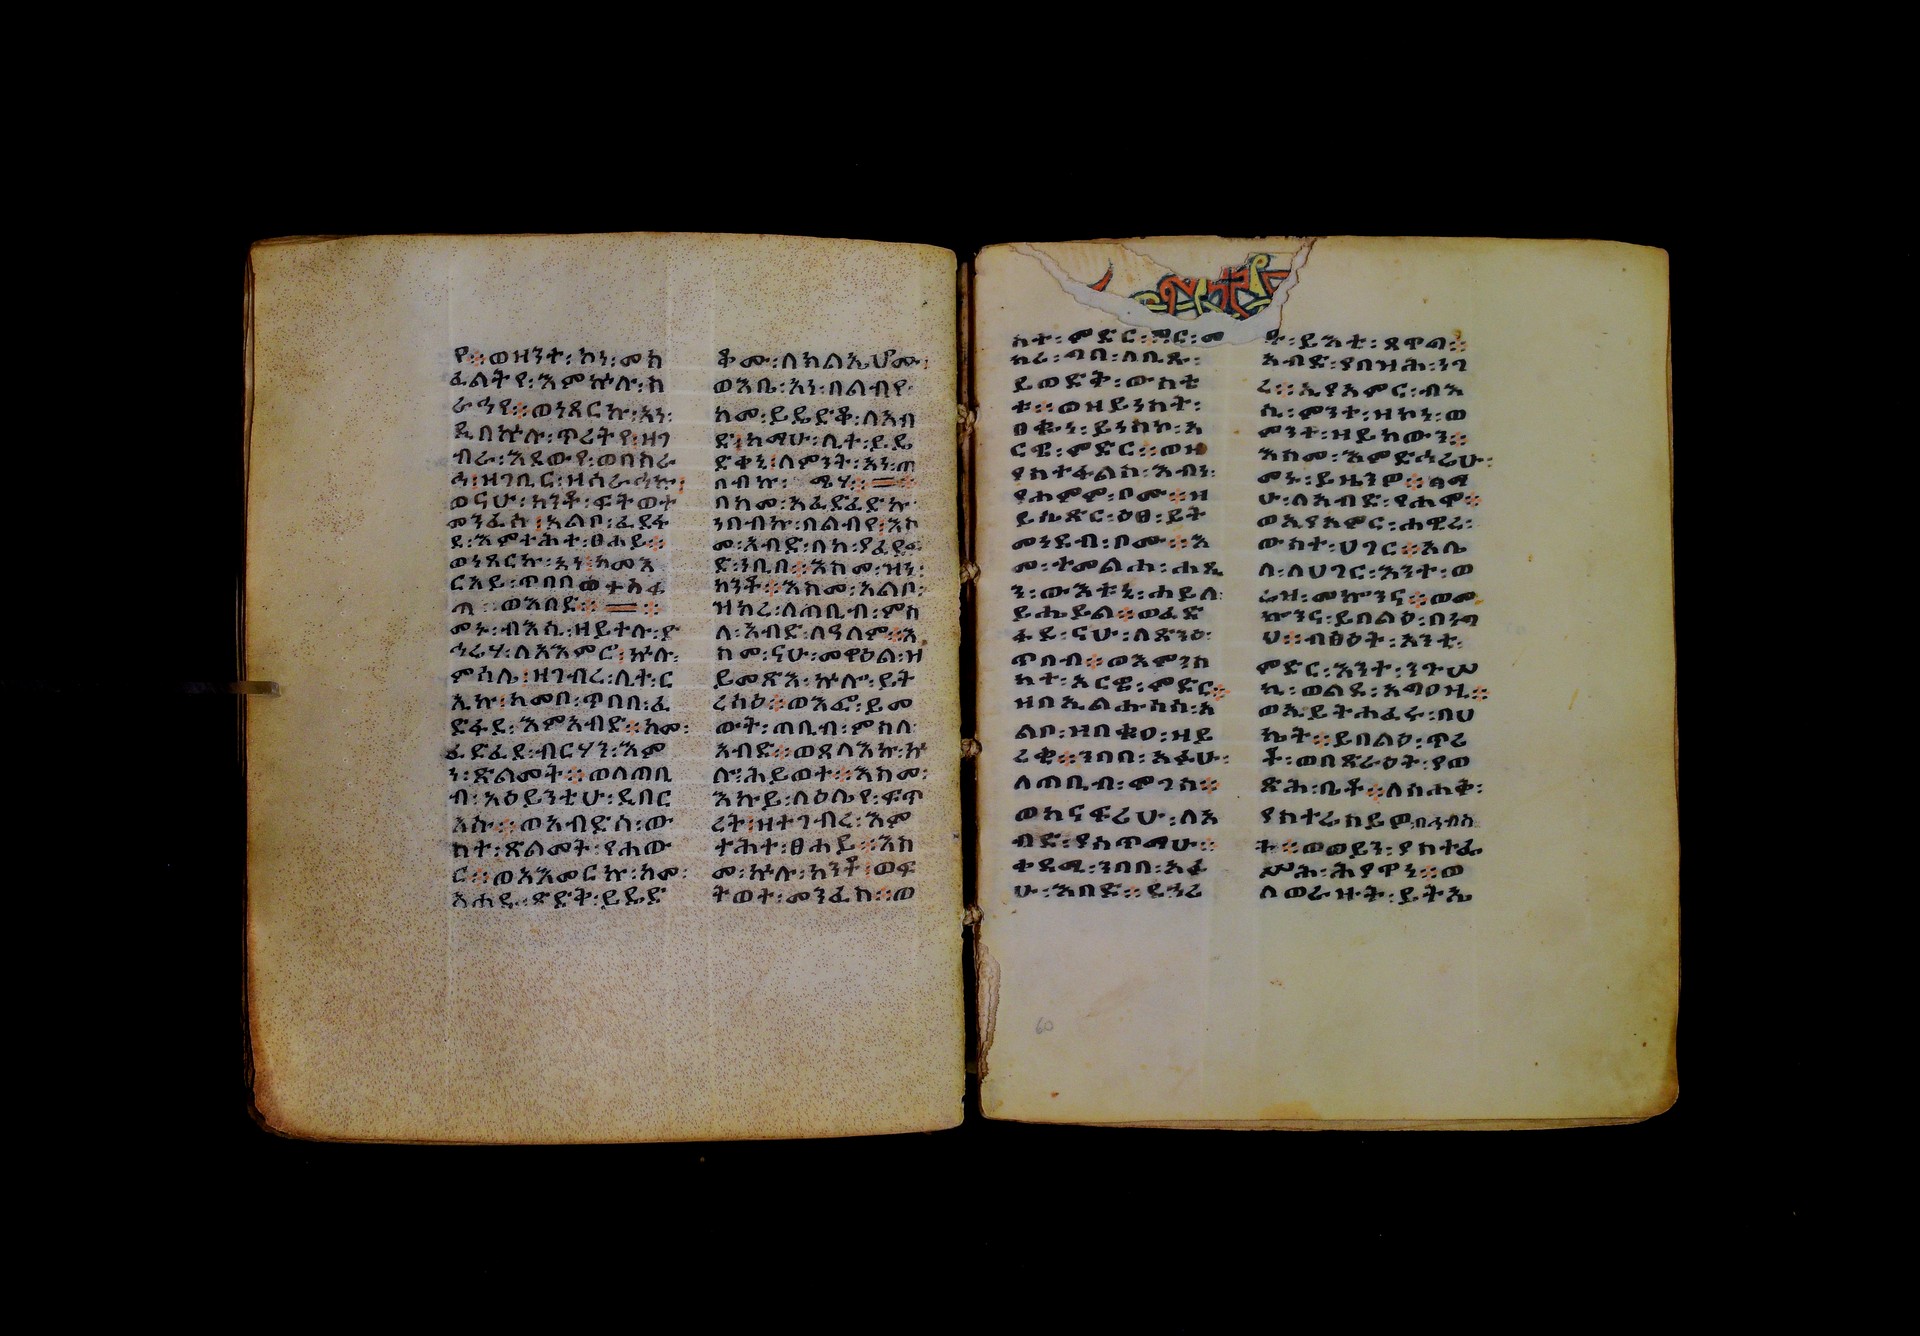 የ፡፡ወዝንተ፡ኮነ፡መክ
ፈልትየ፡እምኵሉ፡ስ
ራሓየ፡፡ወነጸርኩ፡አነ፡
ዲበኵሉ፡ጥሪትየ፡ዘገ
ብራ፡እደውየ፡ወበስራ
ሓ፡ዘገቢር፡ዘሰራሓኩ፡
ወናሁ፡ከንቶ፡ፍትወተ
መንፈስ፡አልቦ፡ፈደፋ
ደ፡እምተሕተ፡ፀሐይ፡፡
ወነጸርኩ፡አነ፡ከመእ
ርአይ፡ጥበበ፡ወተከፋ
ጠ፡፡ወእበደ፡፡
መኑ፡ብእሲ፡ዘይተሉ፡ድ
ኅሬሃ፡ለእእምሮ፡ኵሉ፡
ምስሌ፡ዘገብረ፡ሊት፡ር
ኢኩ፡ከመቦ፡ጥበበ፡ፈ
ድፋደ፡እምእብድ፡፡ከመ፡
ፈድፈደ፡ብርሃን፡እም
ነ፡ጽልመት፡፡ወለጠቢ
ብ፡አዕይንቲሁ፡ዲበር
እሱ፡፡ወአብድሰ፡ው
ስተ፡ጽልመት፡የሐው
ር፡፡ወአእመርኩ፡ከመ፡
አሐዱ፡ድድቅ፡ይዴድ
ቆሙ፡ለክልኤሆሙ፡
ወእቤ፡አነ፡በልብየ፡
ከመ፡ይዴድቆ፡ለአብ
ድ፡ከማሁ፡ሊተ፡ይዴ
ድቀኒ፡ለምንት፡አነ፡ጠ
በብኩ፡
በከመ፡አፈድፈድኩ
ነበብኩ፡በልብየ፡እስ
መ፡አብድ፡በከ፡የፈደፍ
ድ፡ነቢበ፡፡እስመ፡ዝኒ፡
ከንቶ፡፡እስመ፡አልቦ፡
ዝክረ፡ለጠቢብ፡ምስ
ለ፡አብድ፡ለዓለም፡፡እ
ስመ፡ናሁ፡መዋዕል፡ዝ
ይመጽእ፡ኵሎ፡ይት
ረሳዕ፡፡ወእፎ፡ይመ
ውት፡ጠቢብ፡ምስለ፡
አብድ፡፡ወጸላእኩ፡ኵ
ሎ፡ሕይወተ፡፡እስመ፡
እኩይ፡ላዕሌየ፡ፍጥ
ረት፡ዘተገብረ፡እም
ተሕተ፡ፀሐይ፡፡እስ
መ፡ኵሉ፡ከንቶ፡ወፍ
ትወት፡መንፈስ፡፡ወ
ከረ፡ግበ፡ለቢጹ፡
ይወድቅ፡ውስቴ
ቱ፡፡ወዘይነስት፡
ፀቈነ፡ይነስኮ፡አ
ርዌ፡ምድር፡፡ወዘ
የስተፋልስ፡እብነ፡
የሐምም፡ቦሙ፡፡ዘ
ይሴጽር፡ዕፀ፡ይት
መነደብ፡ቦሙ፡፡እ
መ፡ተመልሐ፡ሐጺ
ን፡ውእቱኒ፡ሐይለ፡
ይሔይል፡፡ወፈድ
ፋደ፡ናሁ፡ለጽንዕ፡
ጥበብ፡፡ወእምነስ
ከተ፡አርዌ፡ምድር፡፡
ዘበኢልሑሰስ፡አ
ልቦ፡ዘበቈዐ፡ዘይ
ረቂ፡፡ነገበ፡አፉሁ፡
ለጠቢብ፡ሞገስ፡፡
ወከናፍሪሁ፡ለአ
ብድ፡ያስጥማሁ፡፡
ቀዳሚ፡ነገበ፡አፈ
ሁ፡እበድ፡፡ደኃሪ
ት፡ይእቲ፡ጸዋግ፡፡
አብድ፡ያበዝሕ፡ነገ
ረ፡፡ኢየአምር፡ብእ
ሲ፡ምንት፡ዘኮነ፡ወ
ምንት፡ዘይከውን፡፡
እስመ፡እምድኅሬሁ፡
መኑ፡ይዜንዎ፡፡ፃማ
ሁ፡ለአብድ፡የሐሞ፡፡
ወኢያአምር፡ሐዊረ፡
ውስተ፡ሀገር፡፡አሌ
ለ፡ለሀገር፡እንተ፡ወ
ሬዛ፡መኰንና፡፡ወመ
ኳንና፡ይበልዕ፡በነግ
ህ፡፡ብፅዕት፡አንቲ፡
ምድር፡እንተ፡ንጉሥ
ኪ፡ወልደ፡አግዐዚ፡፡
ወኢይትሐፈሩ፡በሀ
ኬት፡፡ይበልዕ፡ጥሪ
ት፡፡ወበጽራዕት፡የወ
ጽሕ፡ቤት፡፡ለስሐቅ፡
ት፡፡ወወይን፡ያስተፌ
ሥሕ፡ሕያዋነ፡፡ወ
ለወራዙት፡ይትኤ
60